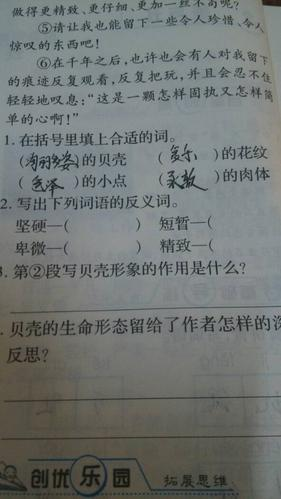 做得更精致、更仔细、更加一丝不苟呢?
⑤请让我也能留下一些令人珍惜、令人
惊叹的东西吧!
⑥在千年之后,也许也会有人对我留下
的痕迹反复观看,反复把玩,并且会忍不住
轻轻地叹息:“这是一颗怎样固执又怎样简
单的心啊!”
1. 在括号里填上合适的词。
( )的贝壳 ( )的花纹
(色泽 )的小点 (柔软 )的肉体
2. 写出下列词语的反义词。
坚硬—( ) 短暂—( )
卑微—( ) 精致—( )
3. 第②段写贝壳形象的作用是什么?
. 贝壳的生命形态留给了作者怎样的深
反思?
创优乐园 拓展思维